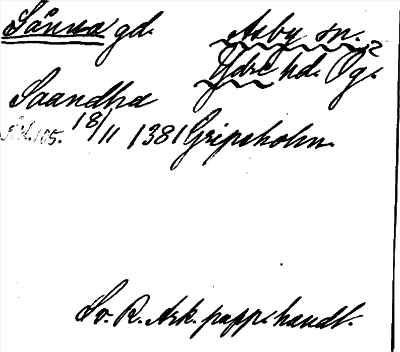 Sånna gd. Asby sn.
Ydre hd. Ög.
Saandha
Sid. 105. 18/11 1381 Gripsholm.
Sv. R. Ark. papp. handl.